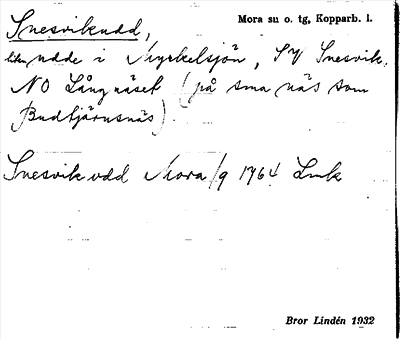 Snesvikudd,
Mora sn o. tg, Kopparb. l.
liten udde i Myckelsjön, SV Snesvik,
NO Långnäset (på sma näs som
Budtjärnsnäs).
Snesvikudd Mora 1764 Lmk
Bror Lindén 1932